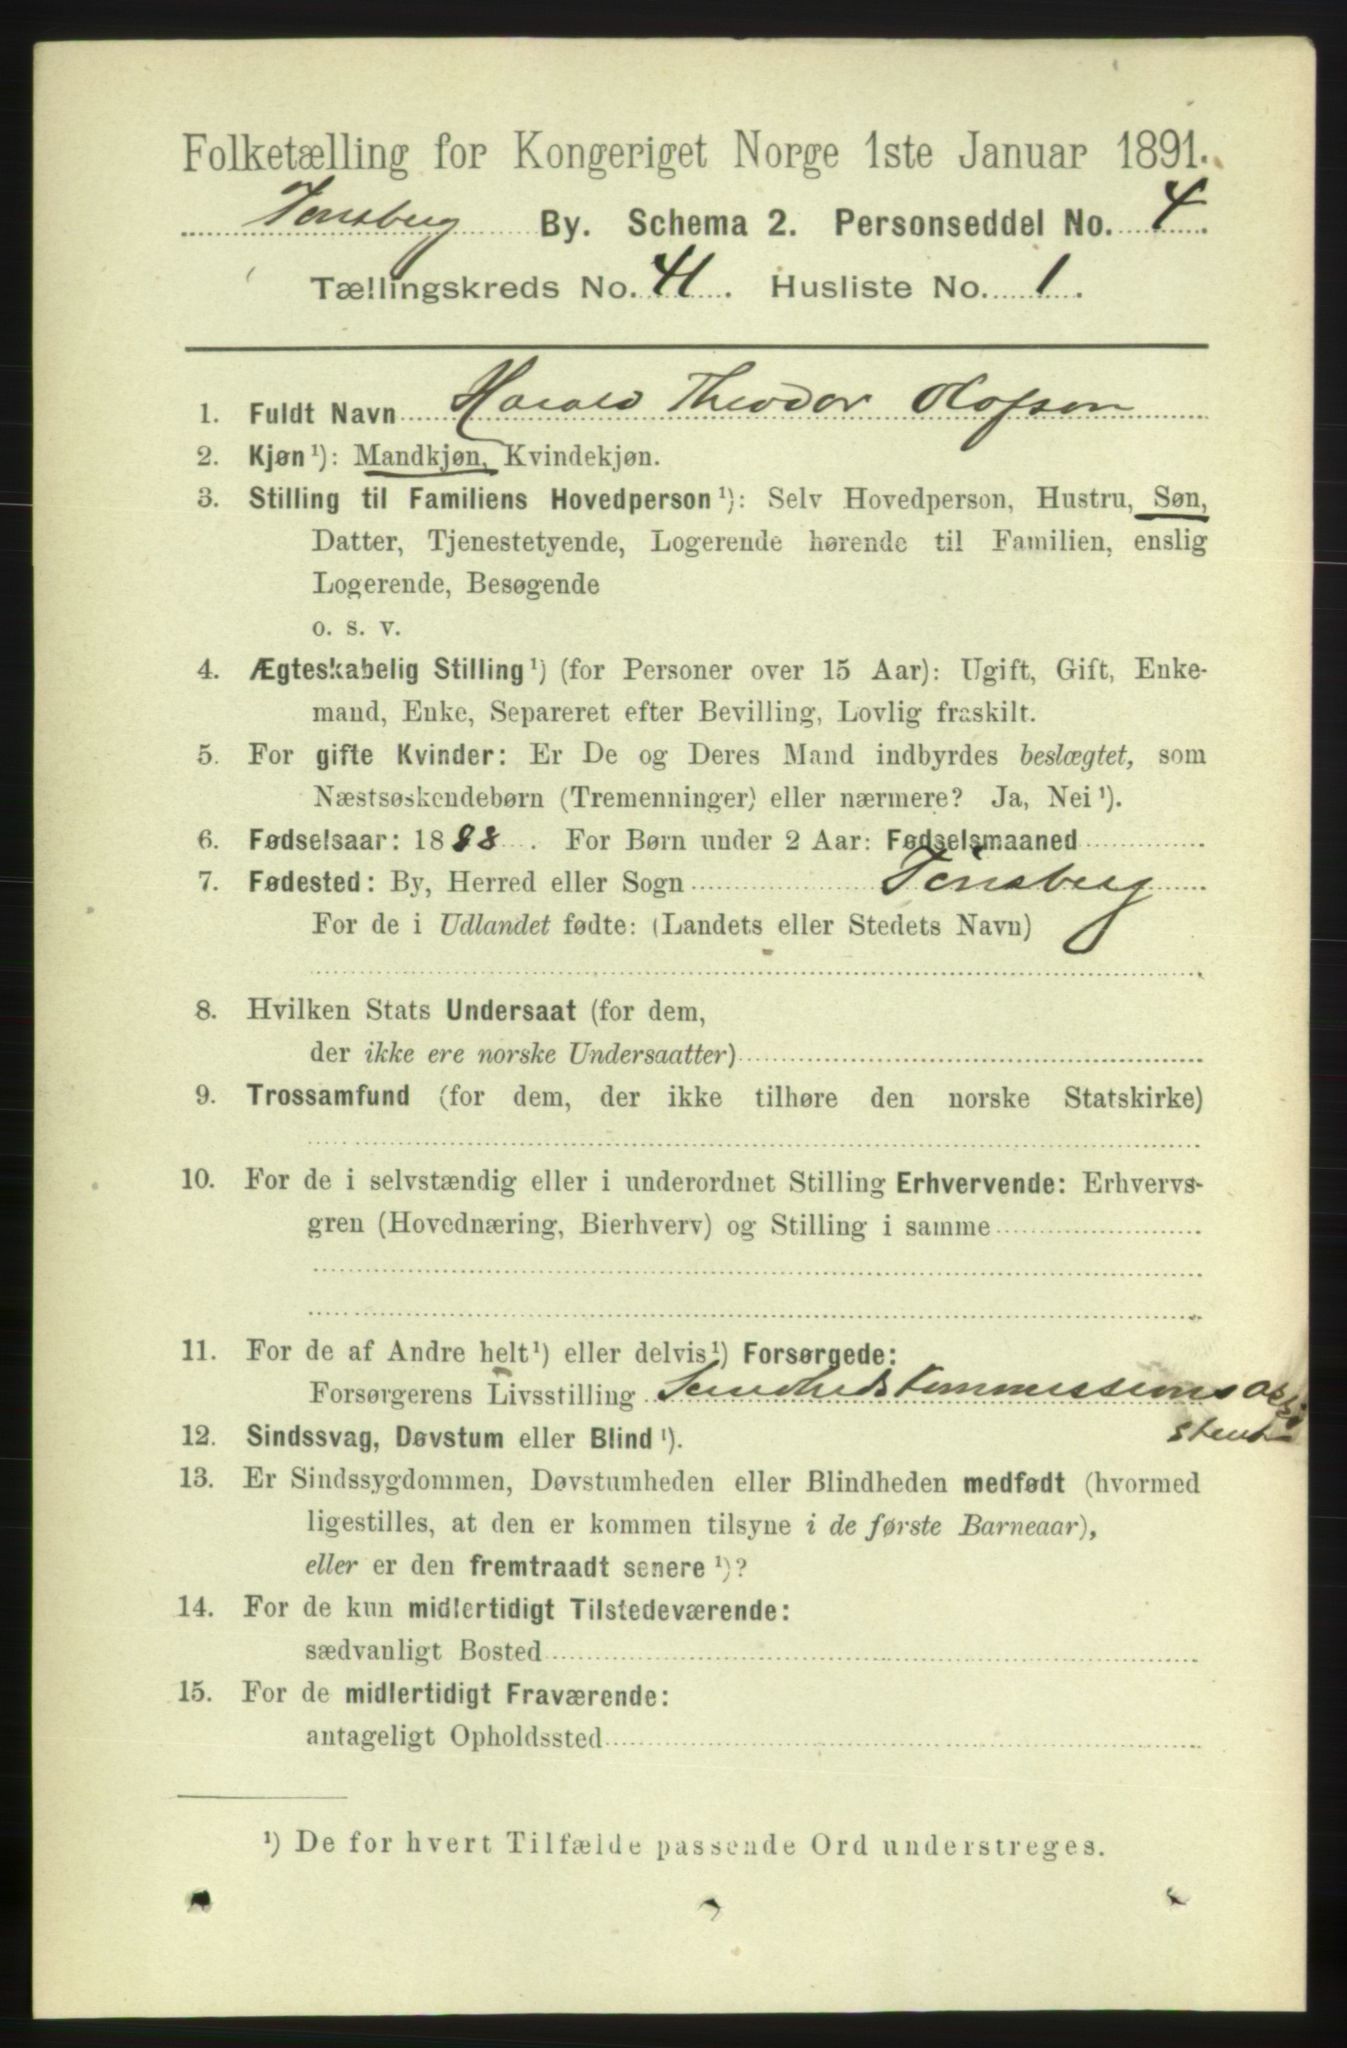 Folketælling for Kongeriget Norge 1ste Januar 1891.
Tønsberg By. Schema 2. Personseddel No. 4
Tællingskreds No. 41. Husliste No. 1.
1. Fuldt Navn Harald Theodor Olafson
2. Kjøn¹): Mandkjøn, Kvindekjøn.
3. Stilling til Familiens Hovedperson¹): Selv Hovedperson, Hustru, Søn,
Datter, Tjenestetyende, Logerende hørende til Familien, enslig
Logerende, Besøgende
o. s. v.
4. Ægteskabelig Stilling¹) (for Personer over 15 Aar): Ugift, Gift, Enke-
mand, Enke, Separeret efter Bevilling, Lovlig fraskilt.
5. For gifte Kvinder: Er De og Deres Mand indbyrdes beslægtet, som
Næstsøskendebørn (Tremenninger) eller nærmere? Ja, Nei¹).
6. Fødselsaar: 1888. For Børn under 2 Aar: Fødselsmaaned
7. Fødested: By, Herred eller Sogn Tønsberg
For de i Udlandet fødte: (Landets eller Stedets Navn)
8. Hvilken Stats Undersaat (for dem,
der ikke ere norske Undersaatter)
9. Trossamfund (for dem, der ikke tilhøre den norske Statskirke)
10. For de i selvstændig eller i underordnet Stilling Erhvervende: Erhvervs-
gren (Hovednæring, Bierhverv) og Stilling i samme
11. For de af Andre helt¹) eller delvis¹) Forsørgede:
Forsørgerens Livsstilling Sundhedskommissions assi
stent
12. Sindssvag, Døvstum eller Blind¹).
13. Er Sindssygdommen, Døvstumheden eller Blindheden medfødt (hvormed
ligestilles, at den er kommen tilsyne i de første Barneaar),
eller er den fremtraadt senere¹)?
14. For de kun midlertidigt Tilstedeværende:
sædvanligt Bosted
15. For de midlertidigt Fraværende:
antageligt Opholdssted
¹) De for hvert Tilfælde passende Ord understreges.